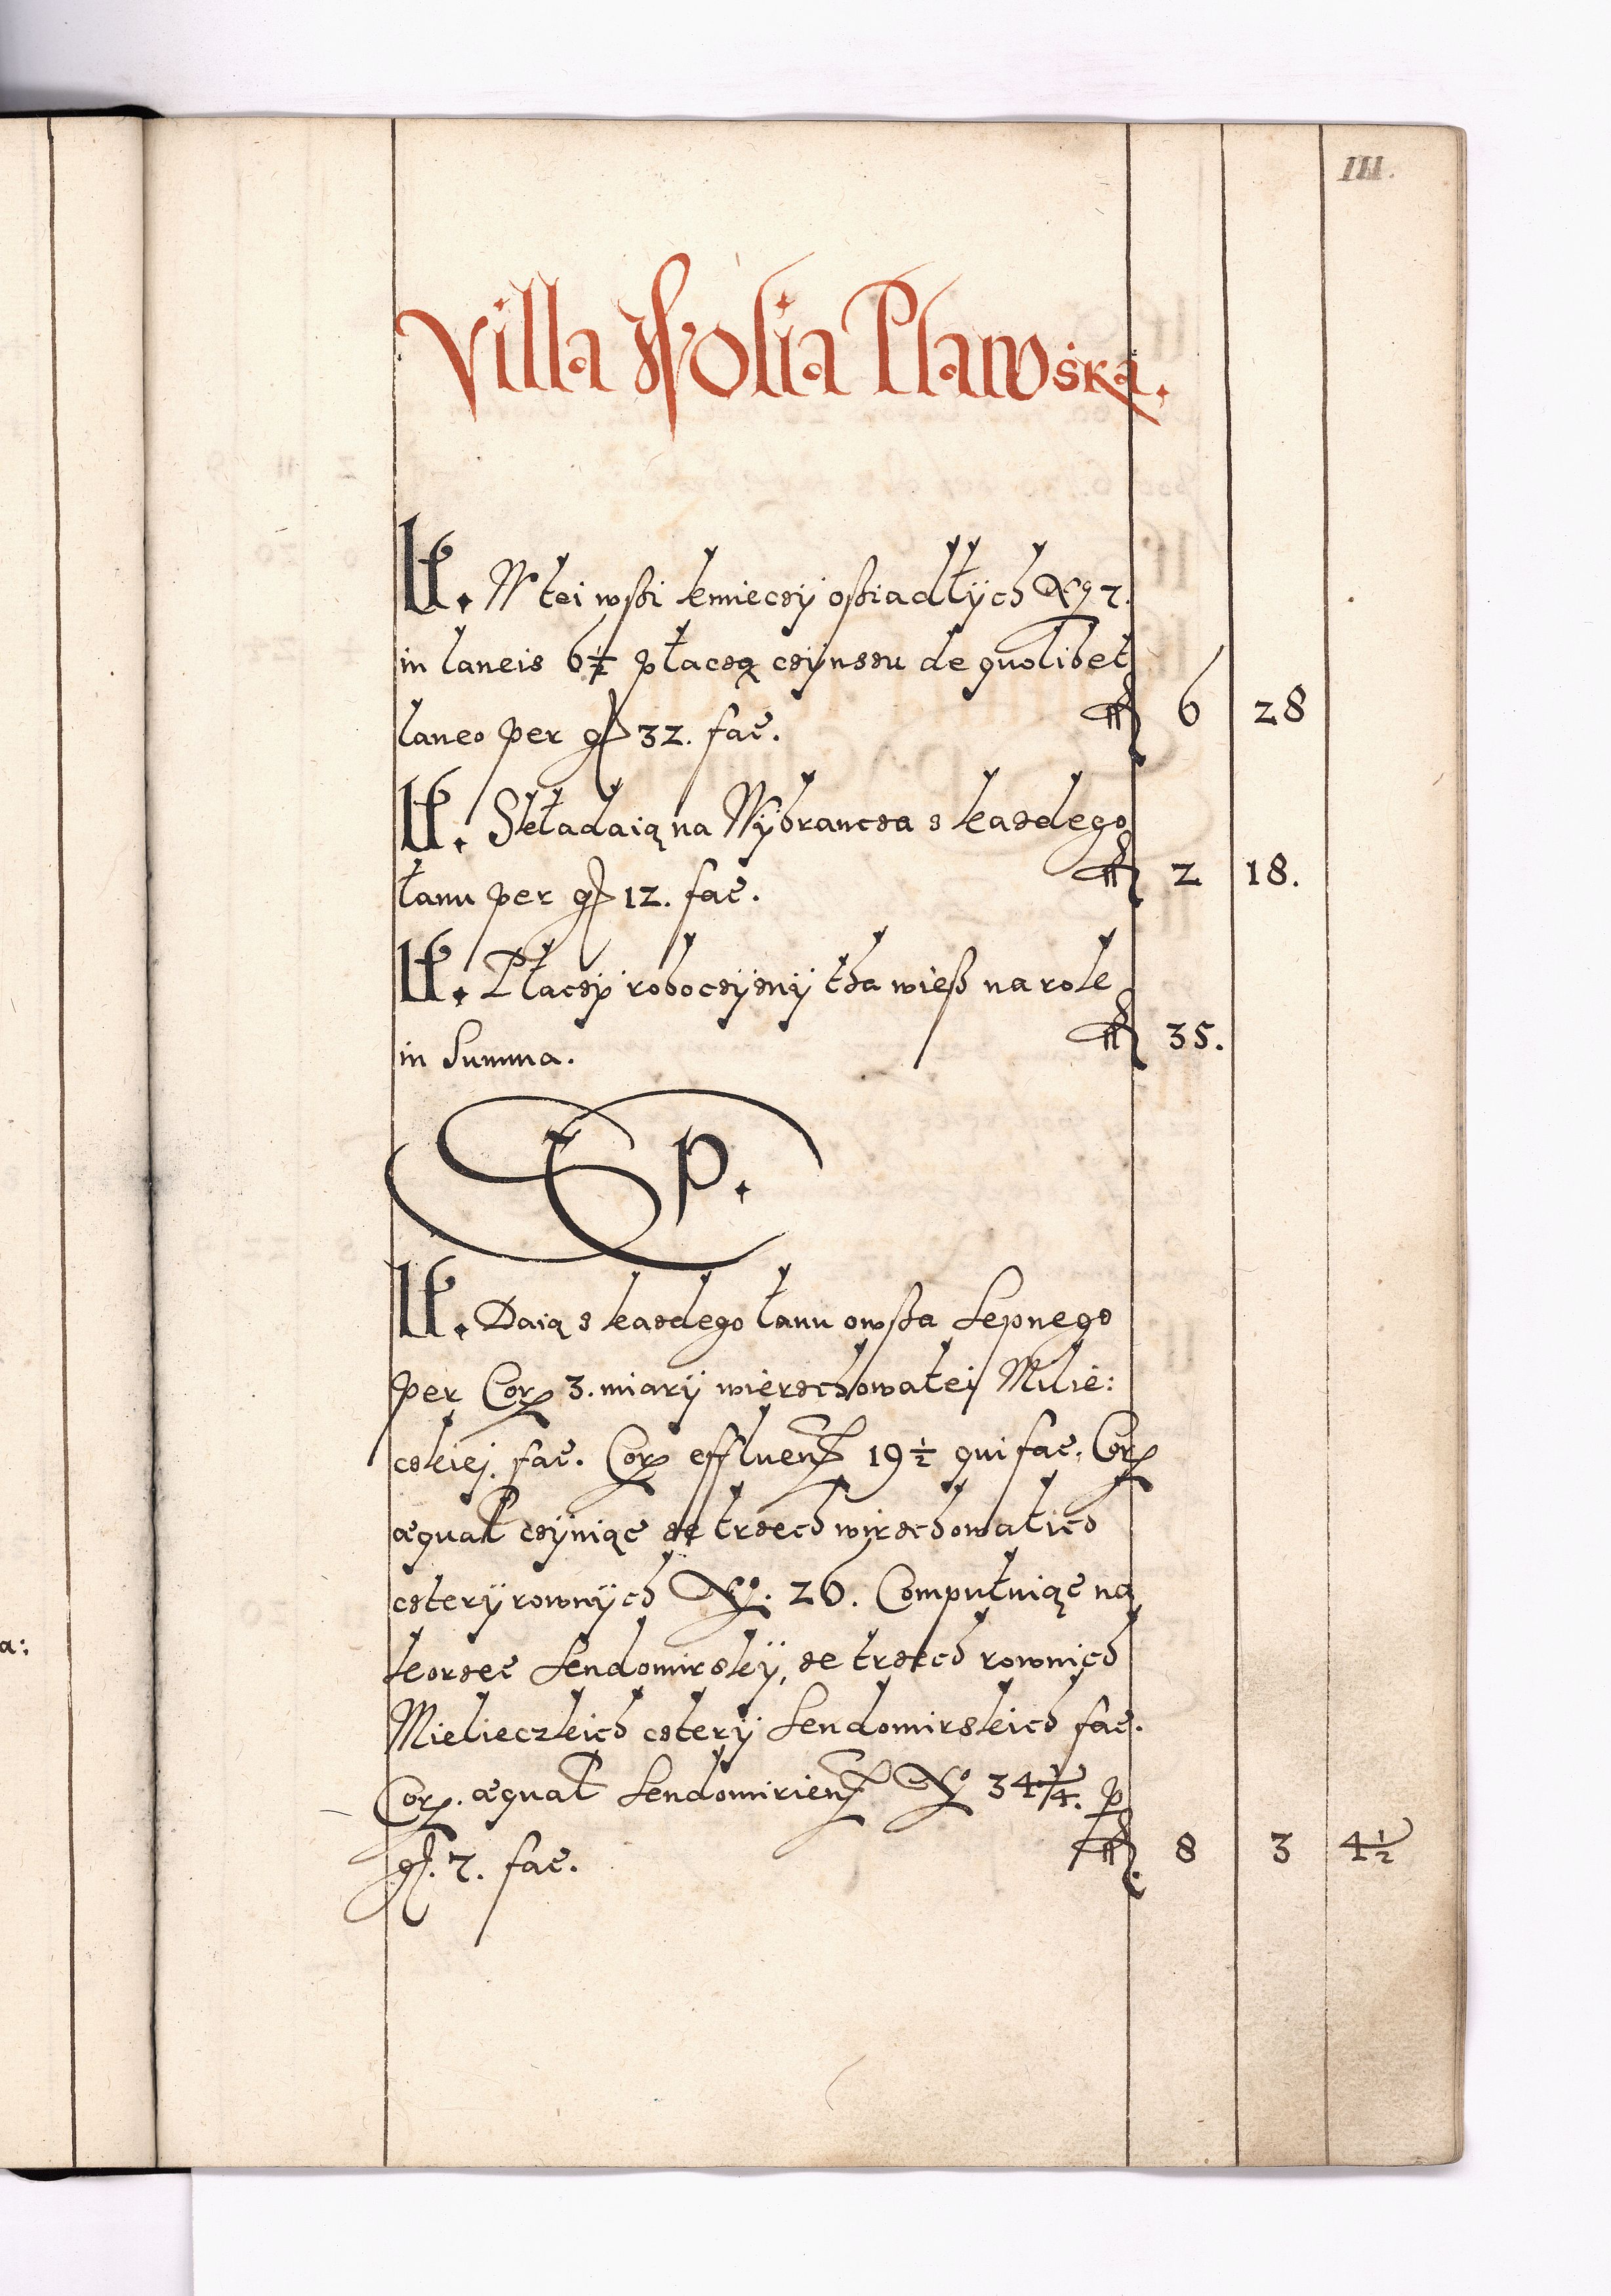 III.
Villa Wolia Plawska.
It. W tei wßi kmieczÿ oßiadłÿch No 7.
in laneis 6½ płaczą czÿnszu de quolibet
laneo per gr 32. fac. fl 6 28
It. Składaią na Wÿbrancza s każdego
łanu per gr 12. fac. fl 2 18.
It. Płaczą roboczÿznÿ tha wieß na rok
in Summa. fl 35.
Ep.
It. Daią s każdego łanu owßa Sepnego
per Cor 3. miarÿ wierzchowatei Milie:
czkiej. fac. Cor effluent 19½ qui fac. Cor
æqual czÿniąc ze trzech wirzchowatich
czterÿ rownÿch No. 26. Computuiąc na
korzec Sendomirskÿ, ze trzech rownich
Mielieczkich czterÿ Sendomirskich fac.
Cor. æqual Sendomirien No 34¾. p
gr. 7. fac. fl 8 3 4½
a: